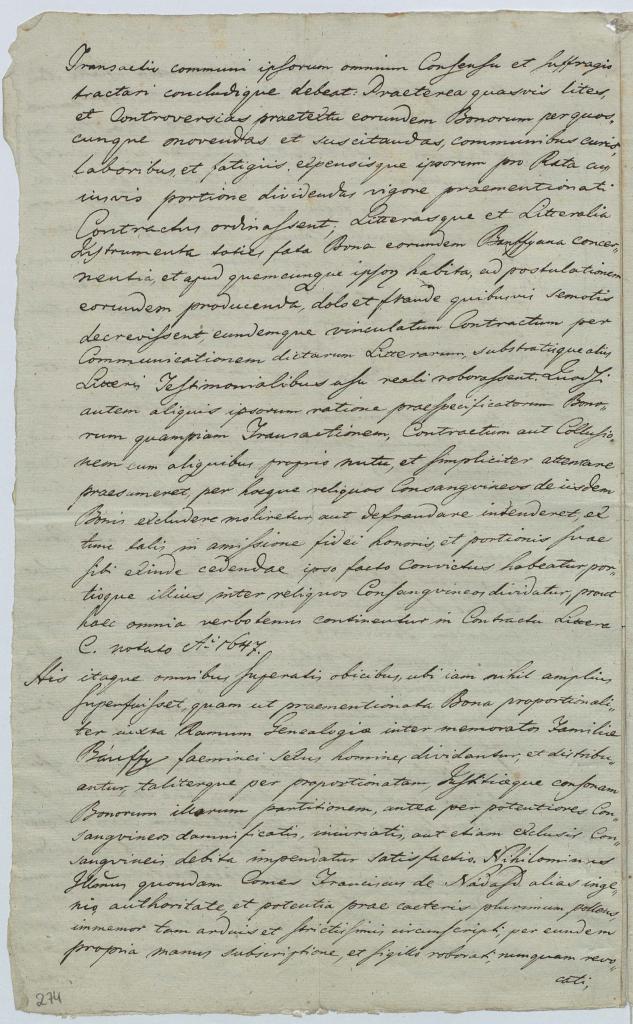 Transactio communi ipsorum omnium Consensu et suffragio
tractari concludique debeat: Praeterea quasvis lites,
et Controversias praetextu eorundem Bonorum per quos,,
cunque movendas et suscitandas, communibus curis,
laboribus, et fatigiis, expensisque ipsorum pro Rata cu,,
iusvis portione dividendas vigore praementionati
Contractus ordinassent; Litterasque et Litteralia
Instrumenta toties fata Bona eorundem Banffyana concer,,
nentia, et apud quemcunque ipsor habita, ad postulationem
eorundem producenda, dolo et fraude quibusvis semotis
decrevissent, eundemque vinculatum Contractum per
Communicationem dictarum Litterarum, substratisque aliis
Litteris Testimonialibus usu reali roborassent. Quodsi
autem aliquis ipsorum ratione praespecificatorum Bono,,
rum quampiam Transactionem, Contractum aut Collusio,,
nem cum aliquibus proprio nutu, et simpliciter attentare
praesumeret, per hocque reliquos Consangvineos de iisdem
Bonis excludere moliretur, aut defraudare intenderet, ex
tunc talis in amissione fidei honoris, et portionis suae
sibi exinde cedendae ipso facto Convictus habeatur, por,,
tioque illius inter reliquos Consangvineos dividatur, prout
haec omnia verbotenus continentur in Contractu Littera
C. notato Ai 1647.
His itaque omnibus superatis obicibus, ubi iam nihil amplius
superfuisset, quam ut praementionata Bona proportionali,,
ter iuxta Ramum Genealogiae inter memoratos Familiae
Bánffy faeminei sexus homines dividantur, et distribu,,
antur, taliterque per proportionatam, Justitiaeque consonam
Bonorum illorum partitionem, antea per potentiores Con,,
sangvineos damnificatis, iniuriatis, aut etiam exclusis Con,,
sangvineis debita impendatur satisfactio. Nihilominus
quondam Comes Franciscus de Nádasd alias inge,,
nio, authoritate, et potentia prae caeteris plurimum pollens
immemor tam arduis et strictissimis circumscripti; per eundem
propria manus subscriptione, et sigillo roborati, nunquam revo,,
cati,
274